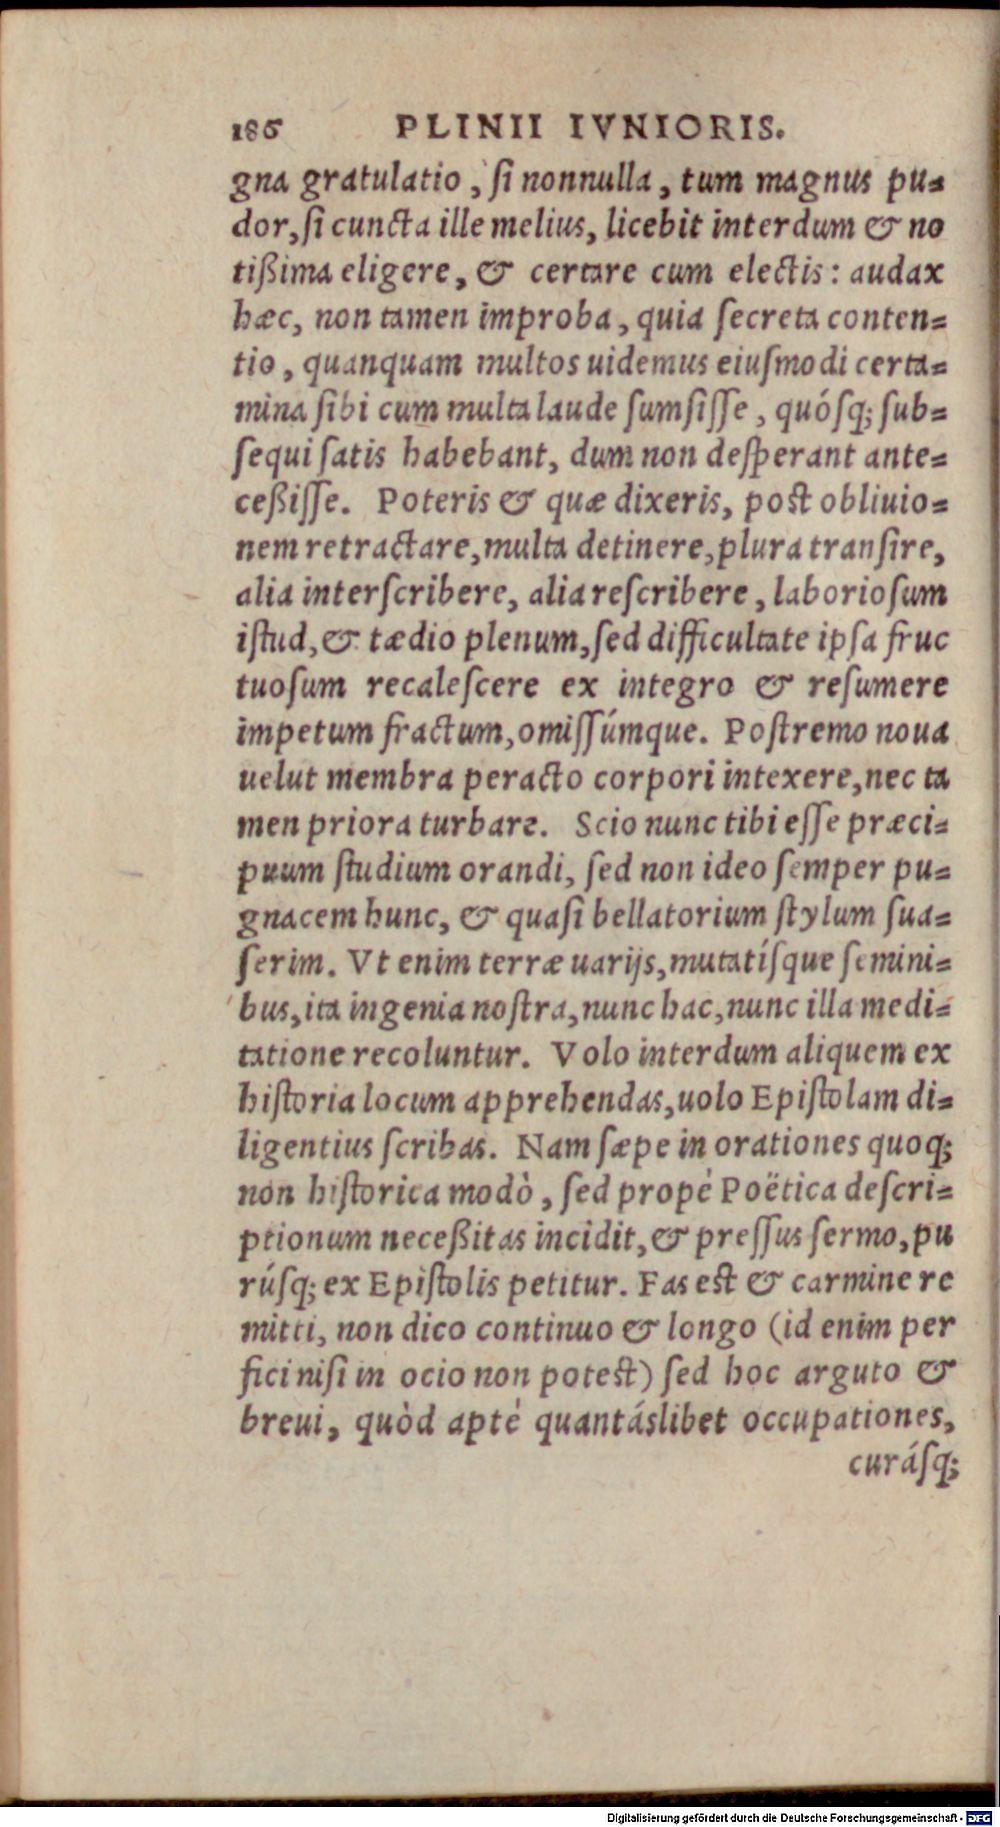 186 PLINII IVNIORIS.
gna gratulatio, si nonnulla, tum magnus pu=
dor, si cuncta ille melius, licebit interdum & no
tißima eligere, & certare cum electis: audax
hæc, non tamen improba, quia secreta conten=
tio, quanquam multos uidemus eiusmodi certa=
mina sibi cum multa laude sumsisse, quósq; sub=
sequi satis habebant, dum non desperant ante=
ceßisse. Poteris & quæ dixeris, post obliuio=
nem retractare, multa detinere, plura transire,
alia interscribere, alia rescribere, laboriosum
istud, & tædio plenum, sed difficultate ipsa fruc
tuosum recalescere ex integro & resumere
impetum fractum, omissúmque. Postremo noua
uelut membra peracto corpori intexere, nec ta
men priora turbare. Scio nunc tibi esse præci=
puum studium orandi, sed non ideo semper pu=
gnacem hunc, & quasi bellatorium stylum sua=
serim. Vt enim terræ uarijs, mutatísque semini=
bus, ita ingenia nostra, nunc hac, nunc illa medi=
tatione recoluntur. Volo interdum aliquem ex
historia locum apprehendas, uolo Epistolam di=
ligentius scribas. Nam sæpe in orationes quoq;
non historica modò, sed propè Poëtica descri=
ptionum neceßitas incidit, & pressus sermo, pu
rúsq; ex Epistolis petitur. Fas est & carmine re
mitti, non dico continuo & longo (id enim per
fici nisi in ocio non potest) sed hoc arguto &
breui, quòd aptè quantáslibet occupationes,
curásq;
Digitalisierung gefördert durch die Deutsche Forschungsgemeinschaft - DFG